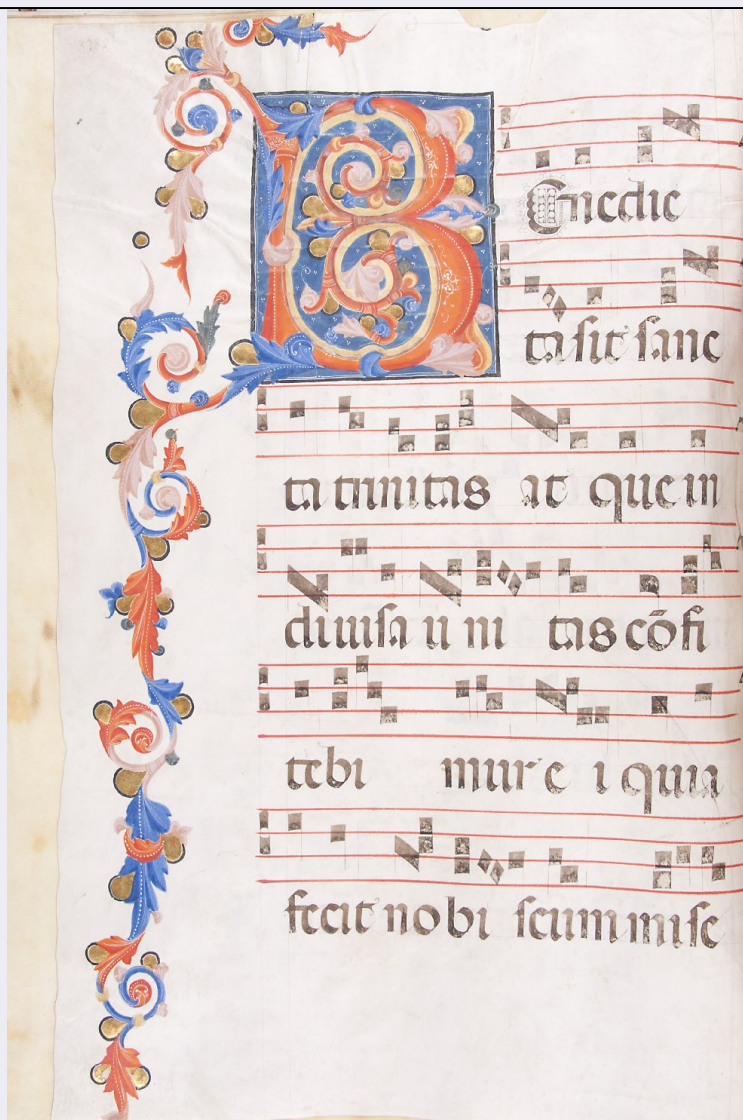 BEnedic
ta sit sanc
ta trinitas at que in
diuisa u ni tas cōfi
tebi mur e i quia
fecit nobi scum mise